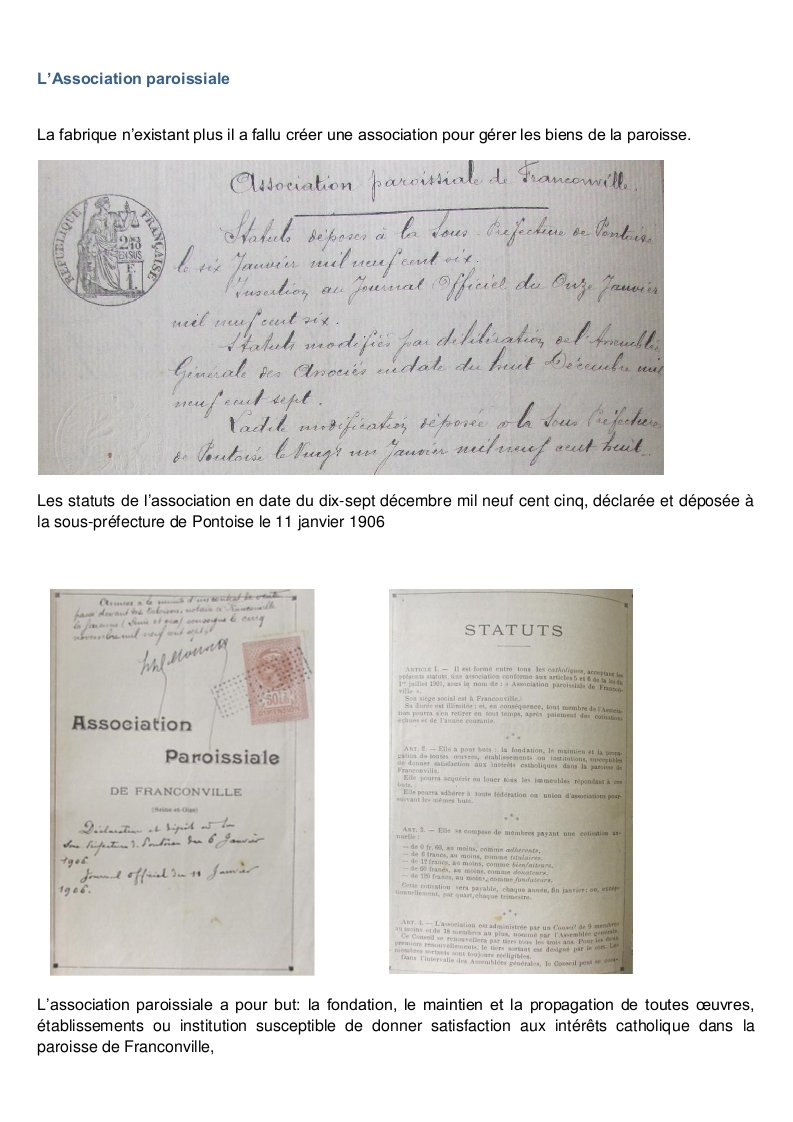 L’Association paroissiale
La fabrique n’existant plus il a fallu créer une association pour gérer les biens de la paroisse.
Association paroissiale de Franconville.
RÉPUBLIQUE FRANÇAISE
2 DES
10
EN SUS
F.
1.
Statuts déposés à la Sous-Préfecture de Pontoise
le six Janvier mil neuf cent six.
Insertion au Journal Officiel du Onze Janvier
mil neuf cent six.
Statuts modifiés par délibération de l'Assemblée
Générale des Associés en date du huit Décembre mil
neuf cent sept.
Ladite modification déposée à la Sous Préfecture
de Pontoise le Vingt un Janvier mil neuf cent huit.
Les statuts de l’association en date du dix-sept décembre mil neuf cent cinq, déclarée et déposée à
la sous-préfecture de Pontoise le 11 janvier 1906
Annexé à la minute d'un contrat de vente
passé devant notaire à Franconville
(Seine et Oise) soussigné le cinq
novembre mil neuf cent sept
Association
Paroissiale
DE FRANCONVILLE
(Seine-et-Oise)
Déclaration et dépôt à la
Sous Préfecture de Pontoise du 6 Janvier
1906
Journal officiel du 11 Janvier
1906.
STATUTS
ARTICLE 1. — Il est formé entre tous les catholiques, acceptant les
présents statuts, une association conforme aux articles 5 et 6 de la loi du
1er juillet 1901, sous le nom de : « Association paroissiale de Francon-
ville ».
Son siège social est à Franconville.
Sa durée est illimitée ; et, en conséquence, tout membre de l'Associa-
tion pourra s'en retirer en tout temps, après paiement des cotisations
échues et de l'année courante.
ART. 2. — Elle a pour buts : la fondation, le maintien et la propa-
gation de toutes œuvres, établissements ou institutions, susceptibles
de donner satisfaction aux intérêts catholiques dans la paroisse de
Franconville.
Elle pourra acquérir ou louer tous les immeubles répondant à ces
buts.
Elle pourra adhérer à toute fédération ou union d'associations pour-
suivant les mêmes buts.
ART. 3. — Elle se compose de membres payant une cotisation an-
nuelle :
— de 0 fr. 60, au moins, comme adhérents,
— de 6 francs, au moins, comme titulaires,
— de 12 francs, au moins, comme bienfaiteurs,
— de 60 francs, au moins, comme donateurs,
— de 120 francs, au moins, comme fondateurs.
Cette cotisation sera payable, chaque année, fin janvier ; ou, excep-
tionnellement, par quart, chaque trimestre.
ART. 4. — L'association est administrée par un Conseil de 9 membres
au moins et de 18 membres au plus, nommé par l'Assemblée générale.
Ce Conseil se renouvellera par tiers tous les trois ans. Pour les deux
premiers renouvellements, le tiers sortant est désigné par le sort. Les
membres sortants sont toujours rééligibles.
Dans l'intervalle des Assemblées générales, le Conseil peut se com-
L’association paroissiale a pour but: la fondation, le maintien et la propagation de toutes œuvres,
établissements ou institution susceptible de donner satisfaction aux intérêts catholique dans la
paroisse de Franconville,